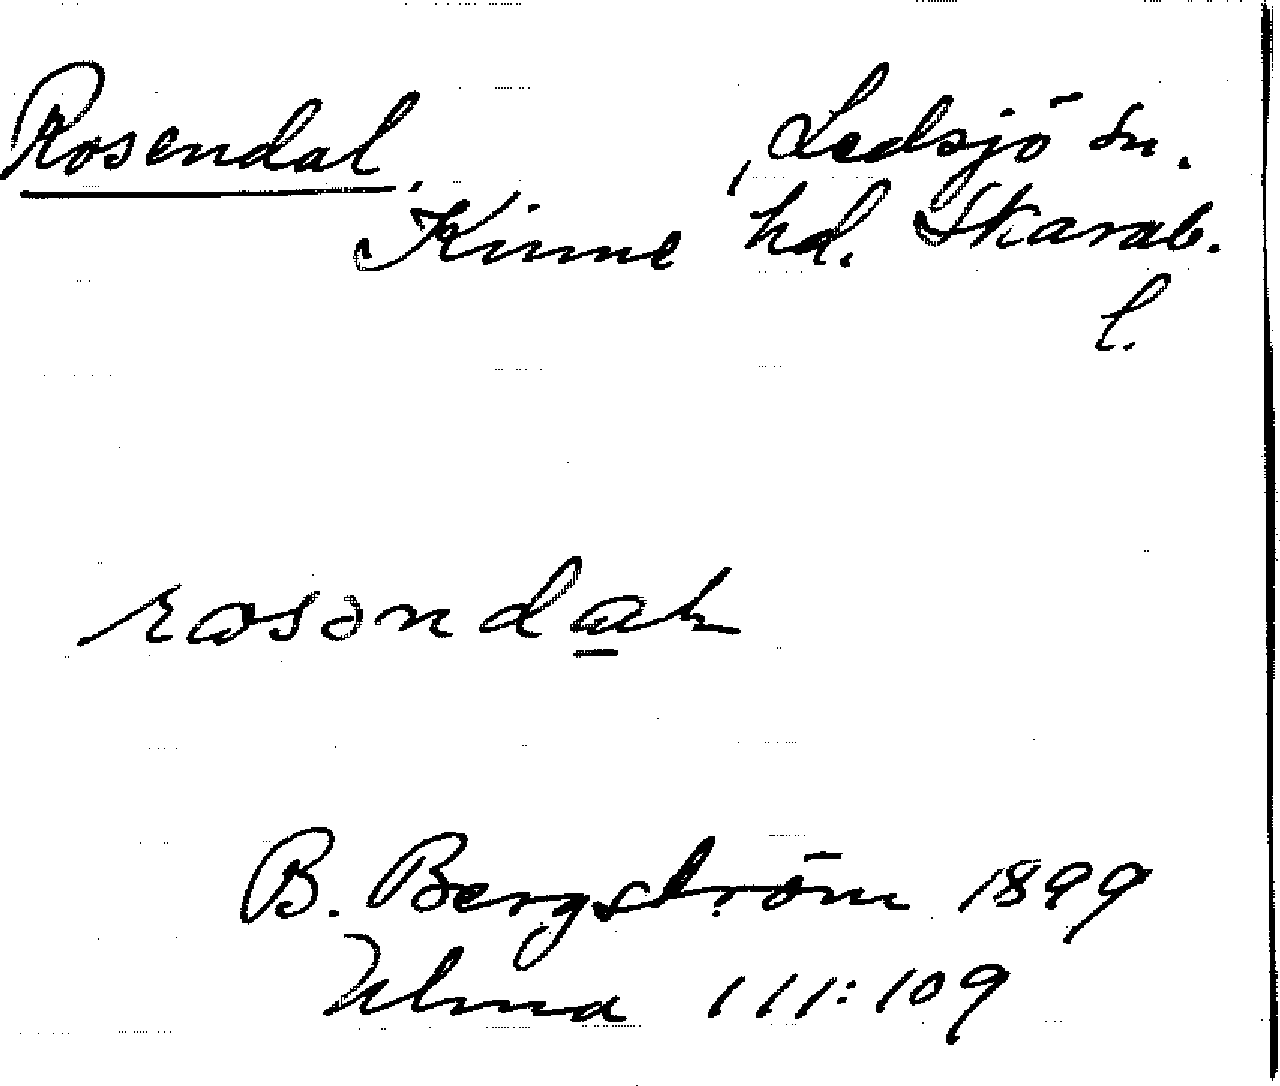 Rosendal, Ledsjö sn.
Kinne hd. Skarab.
l.
rosəndaḻ
B. Bergström 1899
Ulma 111:109